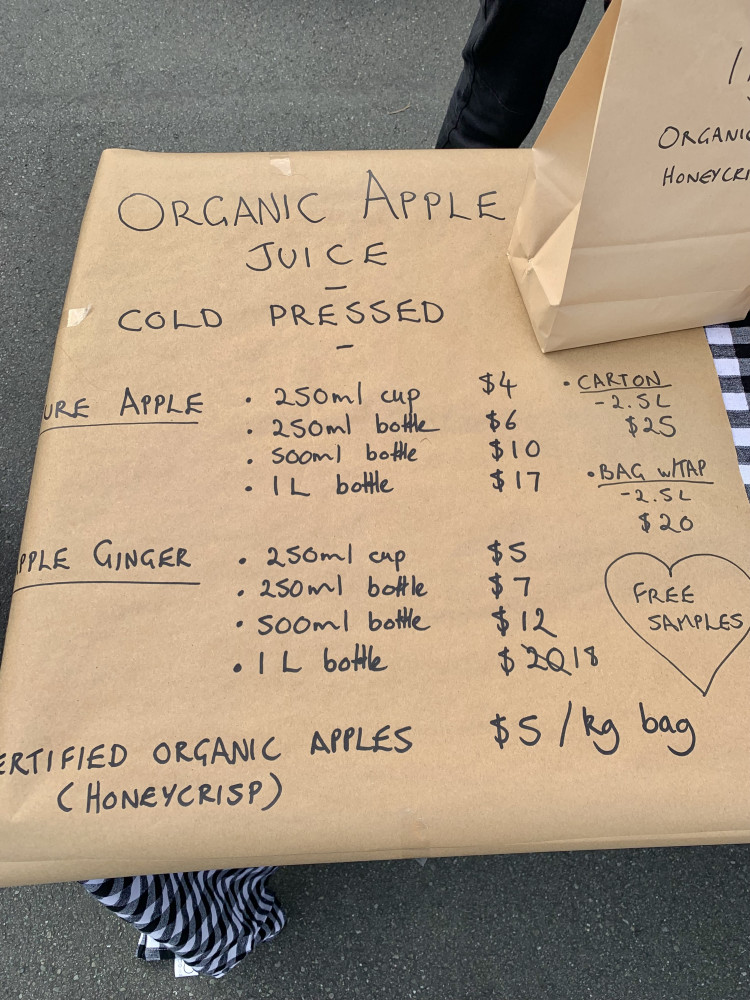 ORGANIC APPLE
JUICE
-
COLD PRESSED
-
URE APPLE
· 250ml cup $4
· 250ml bottle $6
· 500ml bottle $10
· 1L bottle $17
· CARTON
- 2.5L
$25
· BAG W/TAP
- 2.5L
$20
PPLE GINGER
· 250ml cup $5
· 250ml bottle $7
· 500ml bottle $12
· 1L bottle $20 18
FREE
SAMPLES
ERTIFIED ORGANIC APPLES $5/kg bag
(HONEYCRISP)
ORGANIC
HONEYCRI